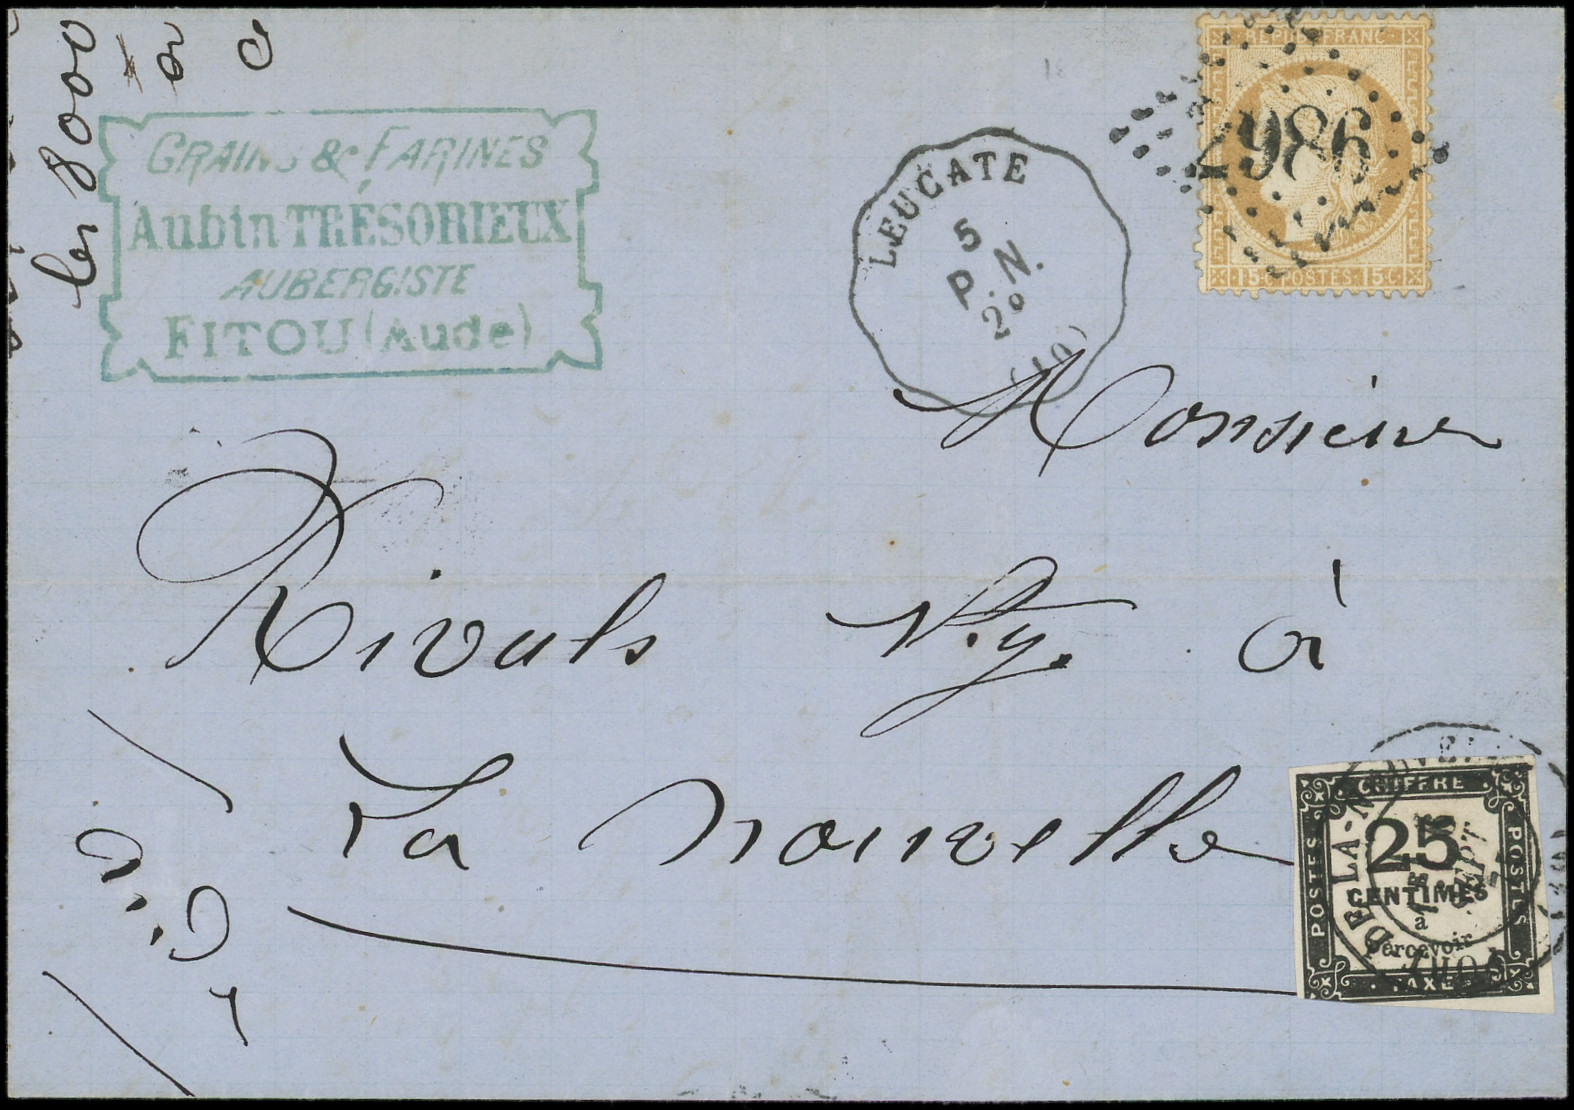 les 8000
GRAINS & FARINES
Aubin TRÉSORIEUX
AUBERGISTE
FITOU (Aude)
LEUCATE
5
P. N.
2°
(10)
REPUB FRANC
2986
15 C POSTES 15 C
Monsieur
Rivals Ng. à
La Nouvelle
CHIFFRE
POSTES
25
CENTIMES
à
percevoir
POSTES
TAXE
PORT DE LA-NOUVELLE
SEPT